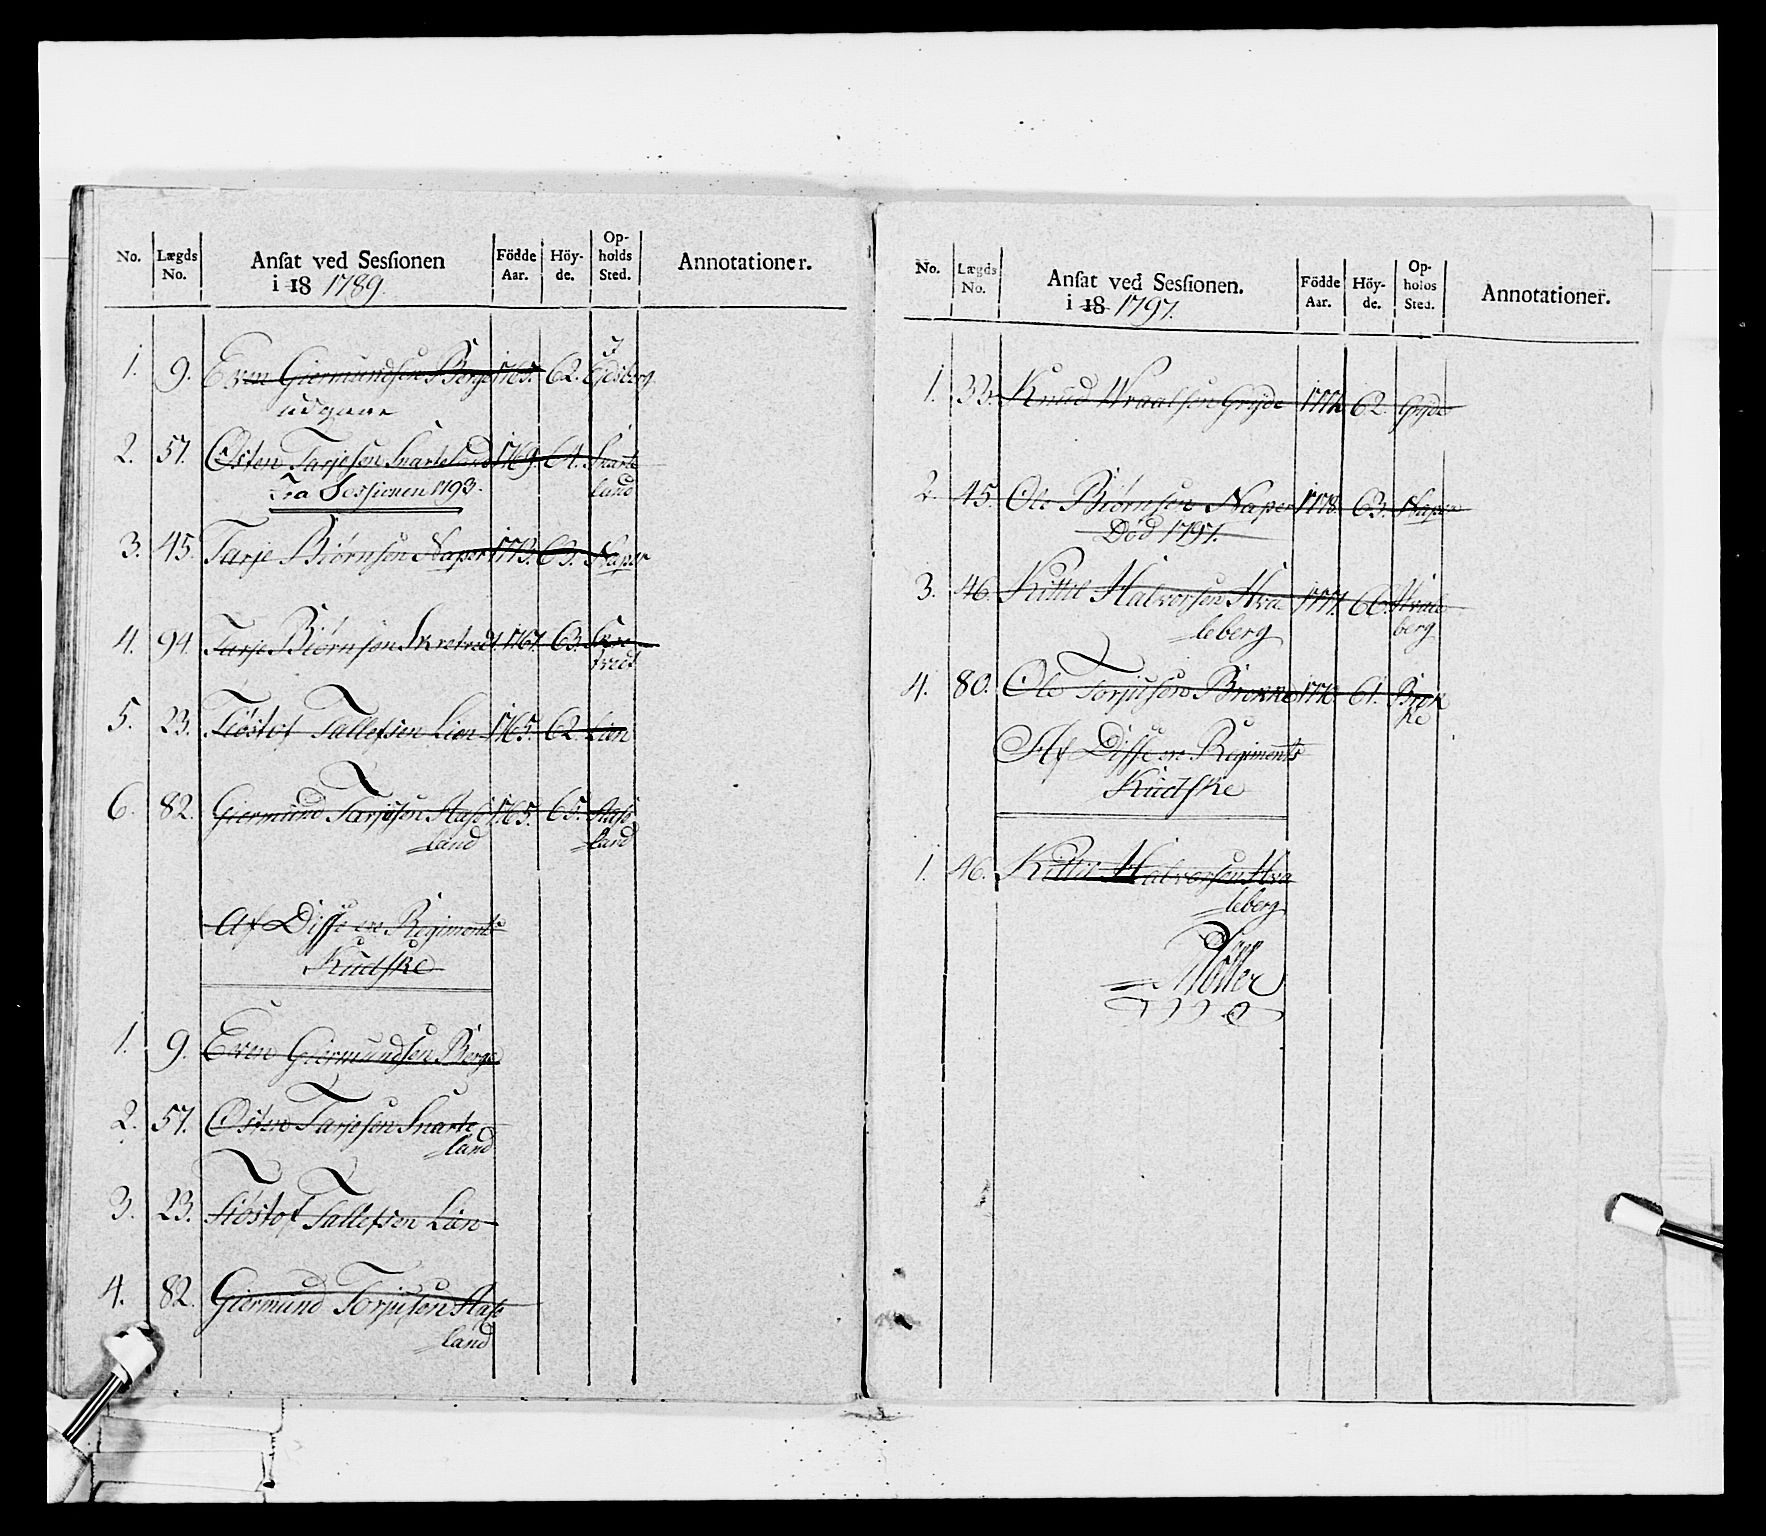 No. Lægds No. Ansat ved Sessionen i 18 1789. Födde Aar. Höyde. Opholds Sted. Annotationer.
1. 9. Even Giermundsen Berge 1765. 62. I Eidsberg
udgaar
2. 57. Østen Tarjesen Snarteland 1769. 64. Snarte
Fra Sessionen 1793. land
3. 45. Tarje Biørnsen Naper 1773. 63. Naper
4. 94. Tarje Biørnsen Skretvedt 1767. 63. Skre
tvedt
5. 23. Tiøstof Tallefsen Lien 1765. 62. Lien
6. 82. Giermund Tarjusen Aase 1765. 65. Aase
land land
Af Disse ere Regiments
Kudske
1. 9. Even Giermundsen Berge
2. 57. Østen Tarjesen Snarte
land
3. 23. Tiøstof Tallefsen Lien
4. 82. Giermund Torjusen Aase
land
No. Lægds No. Ansat ved Sessionen. i 18 1797. Födde Aar. Höyde. Opholds Sted. Annotationer.
1. 33. Knud Wraalsen Gryde 62. Gryde
2. 45. Ole Biørnsen Naper 1778. 63. Naper
Død 1797.
3. 46. Kittil Halvorsen Hva 1777. 60. Hvale
leberg berg
4. 80. Ole Torjusen Brokke 61. Brok
ke
Af Disse ere Regiments
Kudske
1. 46. Kittil Halvorsen Hva
leberg